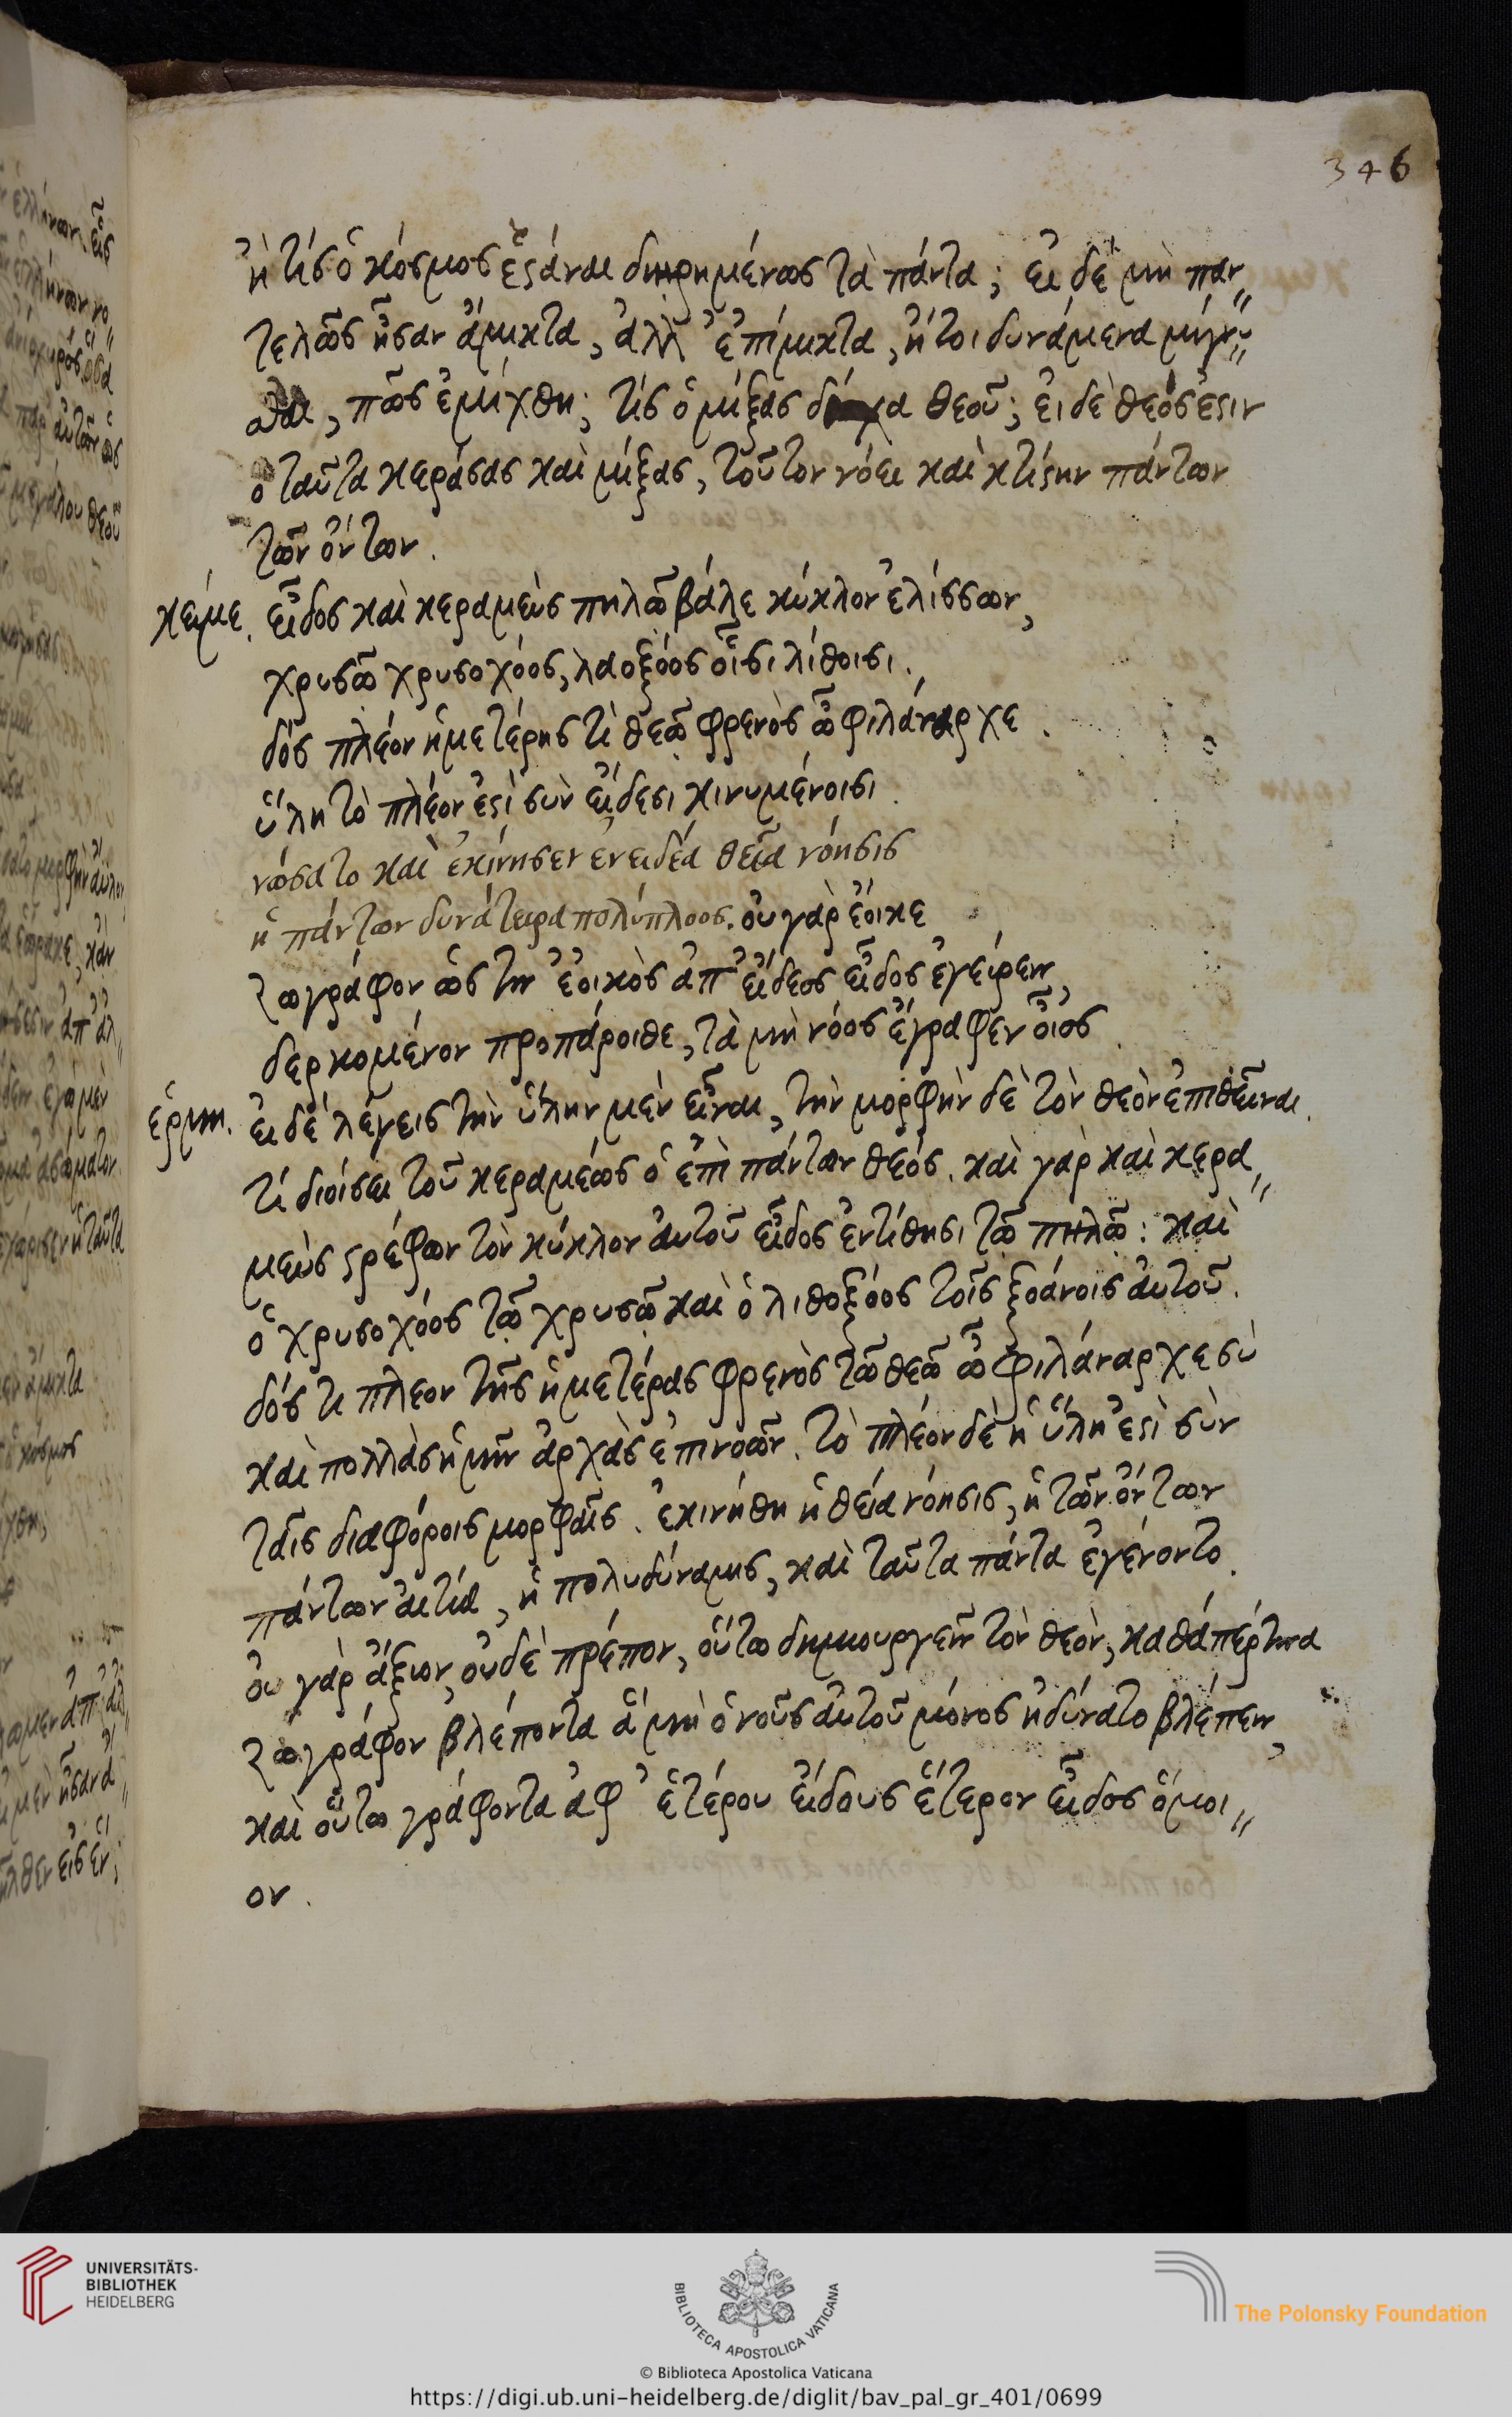 346
ἢ τίς ὁ κόσμος ἑστάναι διῃρημένως τὰ πάντα; εἰ δὲ μὴ παν
τελῶς ἦσαν ἄμικτα, ἀλλ' ἐπίμικτα, ἤτοι δυνάμενα μίγνυ
σθαι, πῶς ἐμίχθη; τίς ὁ μίξας δίχα θεοῦ; εἰ δὲ θεός ἐστιν
ὁ ταῦτα κεράσας καὶ μίξας, τοῦτον νόει καὶ κτίστην πάντων
τῶν ὄντων.
κείμε. εἶδος καὶ κεραμεὺς πηλῶ βάλε κύκλον ἑλίσσων,
χρυσῶ χρυσοχόος, λαοξόος οἷσι λίθοισι.
δός πλέον ἡμετέρης τὶ θεῶ φρενὸς ὦ φιλάναρχε.
ὕλη τὸ πλέον ἐστὶ σὺν εἴδεσι κινυμένοισι.
νώσατο καὶ ἐκίνησεν ἐνειδέα θεῖα νόησις
ἡ πάντων δυνάτειρα πολύπλοος. οὐ γὰρ ἔοικε
ζωγράφον ὥς τιν' ἐοικὸς ἀπ' εἴδεος εἶδος ἐγείρειν,
δερκομένον προπάροιθε, τὰ μὴ νόος ἔγραφεν οἶος.
ἑρμη. εἰ δὲ λέγεις τὴν ὕλην μὲν εἶναι, τὴν μορφὴν δὲ τὸν θεὸν ἐπιθεῖναι.
τί διοίσει τοῦ κεραμέως ὁ ἐπὶ πάντων θεός. καὶ γὰρ καὶ κερα
μεὺς στρέφων τὸν κύκλον αὐτοῦ εἶδος ἐντίθησι τῶ πηλῶ: καὶ
ὁ χρυσοχόος τῶ χρυσῶ καὶ ὁ λιθοξόος τοῖς ξοάνοις αὐτοῦ.
δός τι πλέον τῆς ἡμετέρας φρενὸς τῶ θεῶ ὦ φιλάναρχε σὺ
καὶ πολλὰς ἡμῖν ἀρχὰς ἐπινοῶν. τὸ πλέον δὲ ἡ ὕλη ἐστὶ σὺν
ταῖς διαφόροις μορφαῖς. ἐκινήθη ἡ θεία νόησις, ἡ τῶν ὄντων
πάντων αἰτία, ἡ πολυδύναμις, καὶ ταῦτα πάντα ἐγένοντο.
οὐ γὰρ ἄξιον, οὐδὲ πρέπον, οὕτω δημιουργεῖν τὸν θεὸν, καθάπερ τινα
ζωγράφον βλέποντα ἃ μὴ ὁ νοῦς αὐτοῦ μόνος ἠδύνατο βλέπειν,
καὶ οὕτω γράφοντα ἀφ' ἑτέρου εἴδους ἕτερον εἶδος ὅμοι
ον.
UNIVERSITÄTS-
BIBLIOTHEK
HEIDELBERG
BIBLIOTECA APOSTOLICA VATICANA
The Polonsky Foundation
© Biblioteca Apostolica Vaticana
https://digi.ub.uni-heidelberg.de/diglit/bav_pal_gr_401/0699